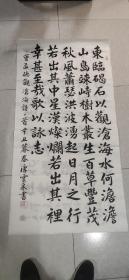 東臨碣石以觀滄海水何澹澹
山島竦峙樹木叢生百草豐茂
秋風蕭瑟洪波湧起日月之行
若出其中星漢燦爛若出其裡
幸甚至哉歌以詠志
曹孟德觀滄海詩一首辛丑暮春雲書